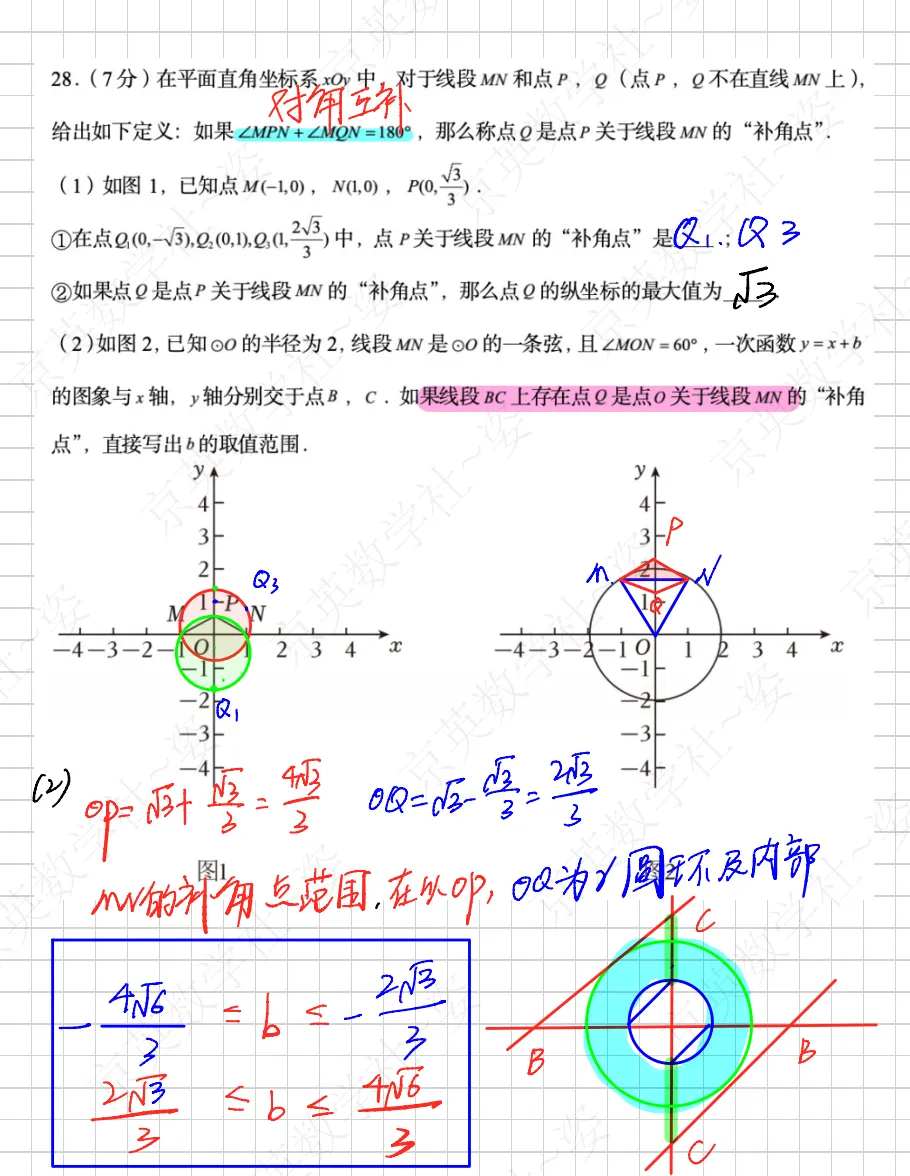 28.(7分)在平面直角坐标系xOy中,对于线段MN和点P,Q(点P,Q不在直线MN上),
对角互补
给出如下定义:如果∠MPN+∠MQN=180°,那么称点Q是点P关于线段MN的“补角点”.
(1)如图1,已知点M(-1,0),N(1,0),P(0,√3/3).
①在点Q₁(0,-√3),Q₂(0,1),Q₃(1,2√3/3)中,点P关于线段MN的“补角点”是Q₁.Q3;
②如果点Q是点P关于线段MN的“补角点”,那么点Q的纵坐标的最大值为√3
(2)如图2,已知⊙O的半径为2,线段MN是⊙O的一条弦,且∠MON=60°,一次函数y=x+b
的图象与x轴,y轴分别交于点B,C.如果线段BC上存在点Q是点O关于线段MN的“补角
点”,直接写出b的取值范围.
y
4
3
2
1
Q₃
M
P
N
-4 -3 -2 -1 O 1 2 3 4 x
-1
-2
Q₁
-3
-4
图1
y
4
3
P
2
M
N
1
Q
-4 -3 -2 -1 O 1 2 3 4 x
-1
-2
-3
-4
图2
(2)
OP=√3+√3/3=4√3/3
OQ=√3-√3/3=2√3/3
MN的补角点范围.在以OP,OQ为r圆环及内部
-4√6/3≤b≤-2√3/3
2√3/3≤b≤4√6/3
C
B
B
C
京英数学社~姿